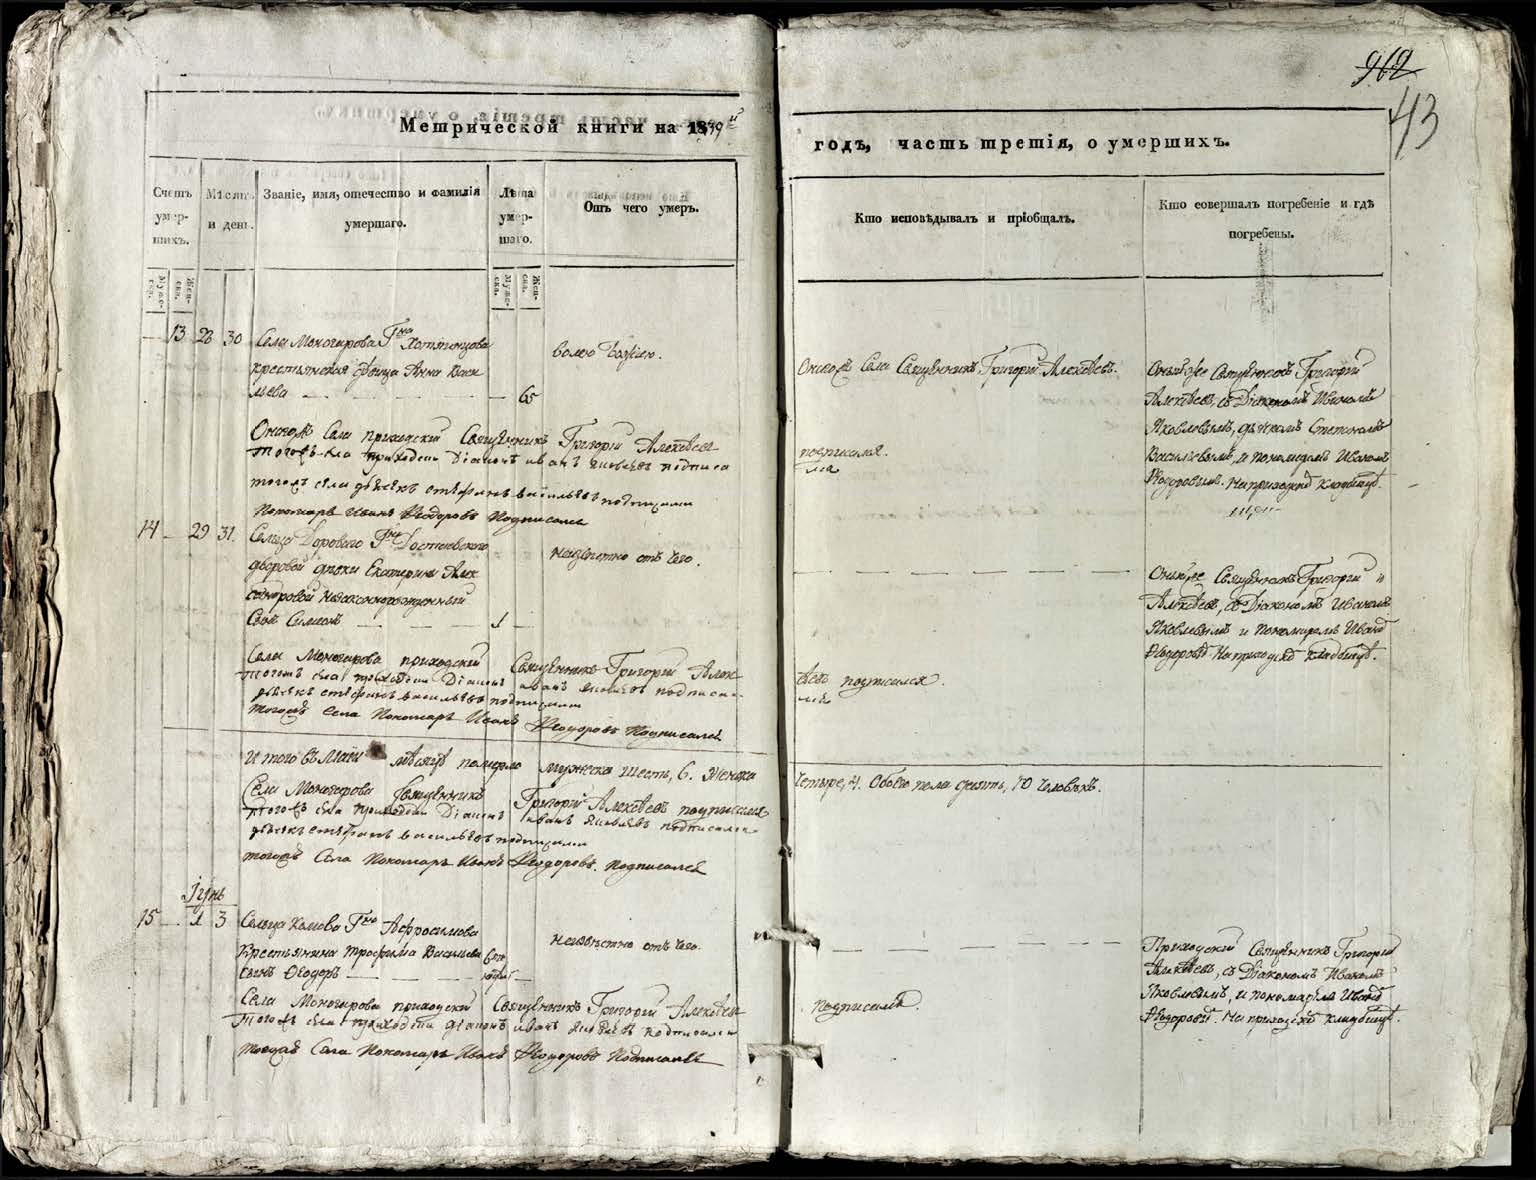 962
43
Метрической книги на 1839й
годъ, часть третія, о умершихъ.
Счетъ умер- шихъ.
Мѣсяцъ и день.
Званіе, имя, отечество и фамилія
умершаго.
Лѣта умер- шаго.
Отъ чего умеръ.
Кто исповѣдывалъ и пріобщалъ.
Кто совершалъ погребеніе и гдѣ
погребены.
Муже- ска.
Жен- ска.
Муже- ска.
Жен- ска.
13 28 30 Села Моногарова Гна Хотяинцова
крестьянская дѣвица Анна Васи
льева 65
волею Божіею.
Оногожъ Села Священникъ Григорій Алексѣевъ.
Оный же Священникъ Григорій
Алексѣевъ, съ Діакономъ Иваномъ
Яковлевымъ, дьячкомъ Стефаномъ
Васильевымъ, и пономаремъ Иваномъ
Ѳедоровымъ. На приходскомъ кладбищѣ.
Оногожъ Села приходскій Священникъ Григорій Алексѣевъ
подписался.
тогожъ села приходскій Діаконъ иванъ яковлевъ подписа
лся
тогожъ села дьячекъ стефанъ васильевъ подписался
Пономарь Иванъ Ѳеодоровъ Подписался
14 29 31 Сельца Дароваго Гна Достоевскаго
дворовой дѣвки Екатерины Алек
сандровой незаконнорожденный
Сынъ Симеонъ 1
неизвѣстно отъ чего.
Оный же Священникъ Григорій
Алексѣевъ, съ Діакономъ Иваномъ
Яковлевымъ и пономаремъ Иваномъ
Ѳедоровымъ. На приходскомъ кладбищѣ.
Села Моногарова приходскій Священникъ Григорій Алек
сѣевъ подписался.
тогожъ села приходскій Діаконъ иванъ яковлевъ подписа-
лся
дьячекъ стефанъ васильевъ подписался
тогожъ Села Пономарь Иванъ Ѳеодоровъ Подписался
Итого въ Маіи мѣсяцѣ померло мужеска шесть, 6. Женска
четыре, 4. Обоего пола десять, 10 человѣкъ.
Села Моногарова Священникъ Григорій Алексѣевъ подписался
тогожъ села приходскій Діаконъ иванъ яковлевъ подписался
дьячекъ стефанъ васильевъ подписался
тогожъ Села Пономарь Иванъ Ѳеодоровъ. Подписался
Іунь
15 1 3 Сельца Гна Афросимова
Крестьянина Трофима Васильева
Сынъ Ѳеодоръ
неизвѣстно отъ чего.
Приходскій Священникъ Григорій
Алексѣевъ, съ Діакономъ Иваномъ
Яковлевымъ, и пономаремъ Иваномъ
Ѳедоровымъ. На приходскомъ кладбищѣ.
Села Моногарова приходскій Священникъ Григорій Алексѣевъ
подписался.
тогожъ села приходскій діаконъ иванъ яковлевъ подписался
тогожъ Села Пономарь Иванъ Ѳеодоровъ Подписался